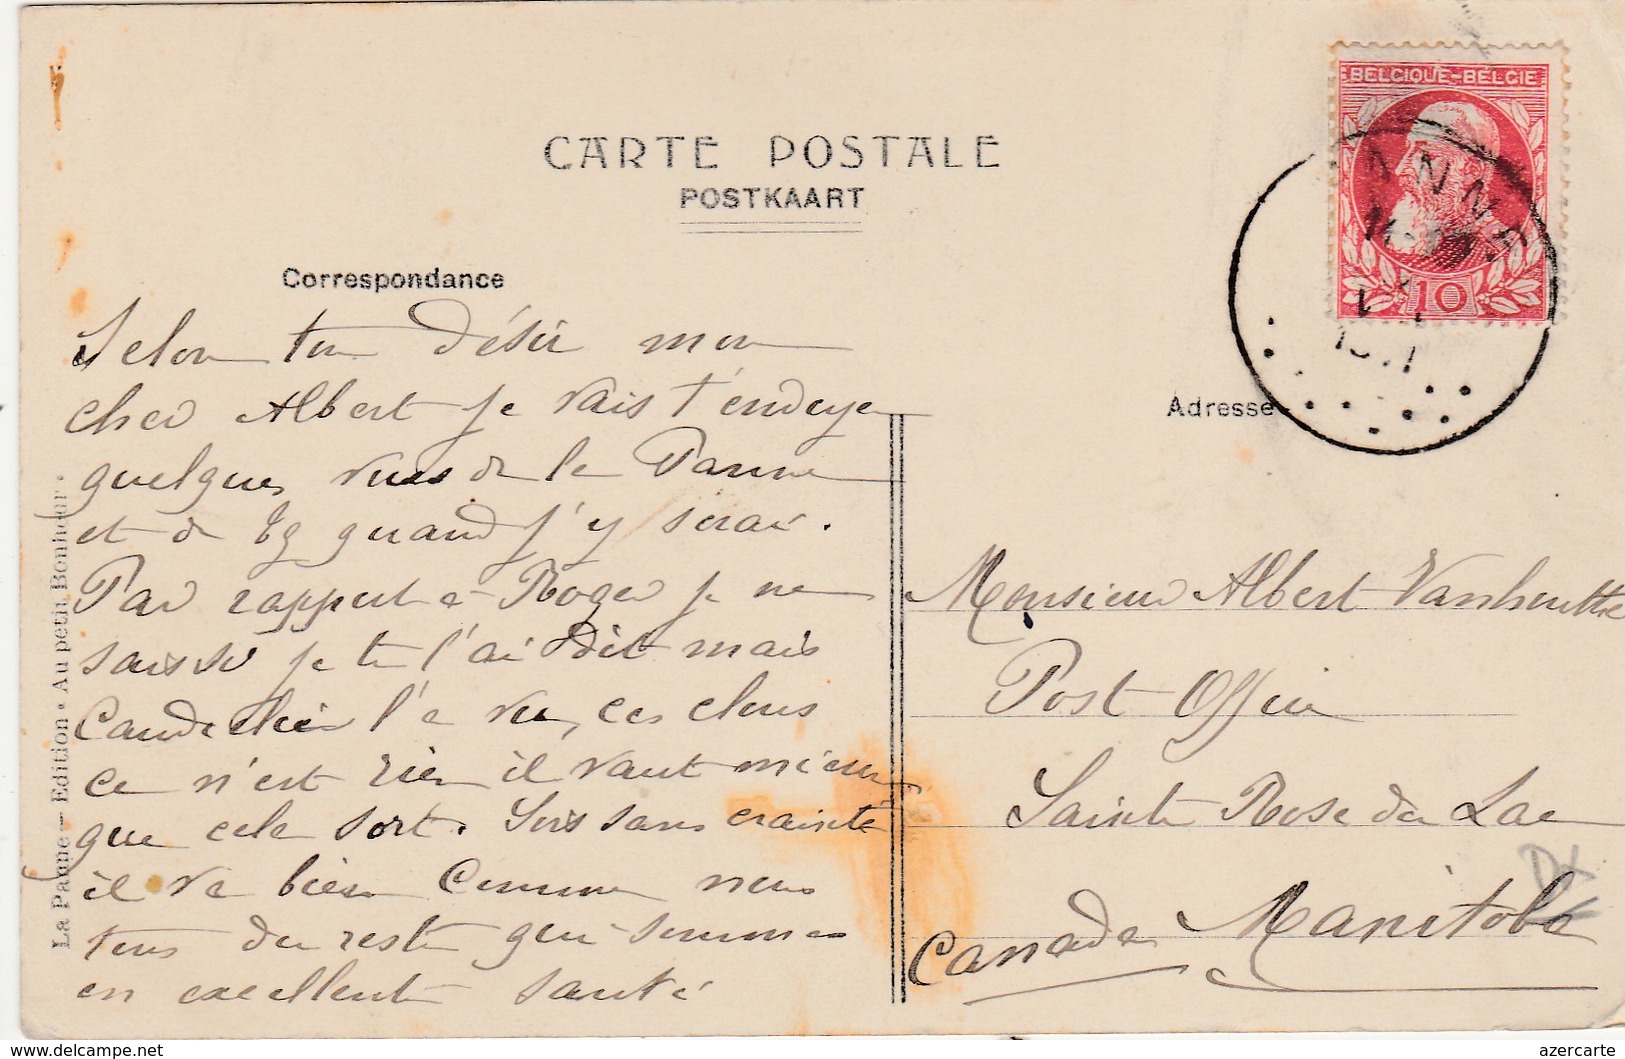 CARTE POSTALE
POSTKAART
Correspondance
Selon ton désir mon
cher Albert je vais t'envoyer
quelques vues de la Panne
et de quand j'y serai.
Par rapport à Roger je ne
sais si je te l'ai dit mais
l'a vu, ces clous
ce n'est rien il vaut mieux
que cela sort. Sois sans crainte
il va bien comme nous
tous du reste qui sommes
en excellente santé
La Panne — Edition • Au petit Bonheur •
BELGIQUE-BELGIË
10
ANNE
Adresse
Monsieur Albert Vanhoutte
Post Office
Sainte Rose du Lac
Manitoba
Canada
DX
https://www.delcampe.net
azercarte